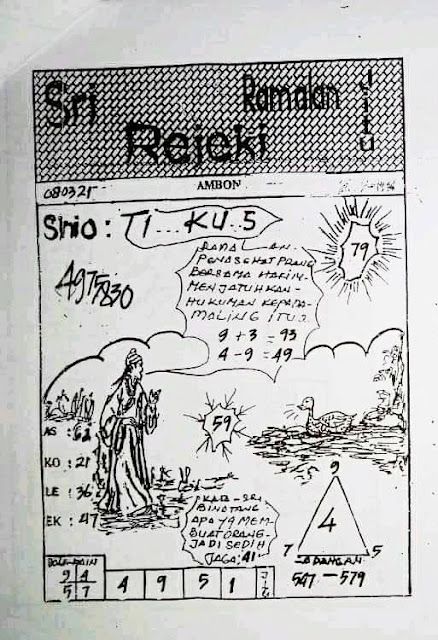 Sri
Ramalan
Jitu
Rejeki
AMBON
08.03.21
Shio : TI...KU..S
79
RAMALAN
PENASEHAT PRANG
BERSAMA HAKIM
MENJATUHKAN-
HUKUMAN KEPADA-
MALING ITU?
9 + 3 = 93
4 - 9 = 49
4975830
59
AS : 62
KO : 21
LE : 36
EK : 47
KAB-SRI
BINATANG
APA YG MEM-
BUAT ORANG-
JADI SEDIH
JAGA: 41
9
4
7
5
CADANGAN
547 - 579
9 4
5 7
4 9 5 1